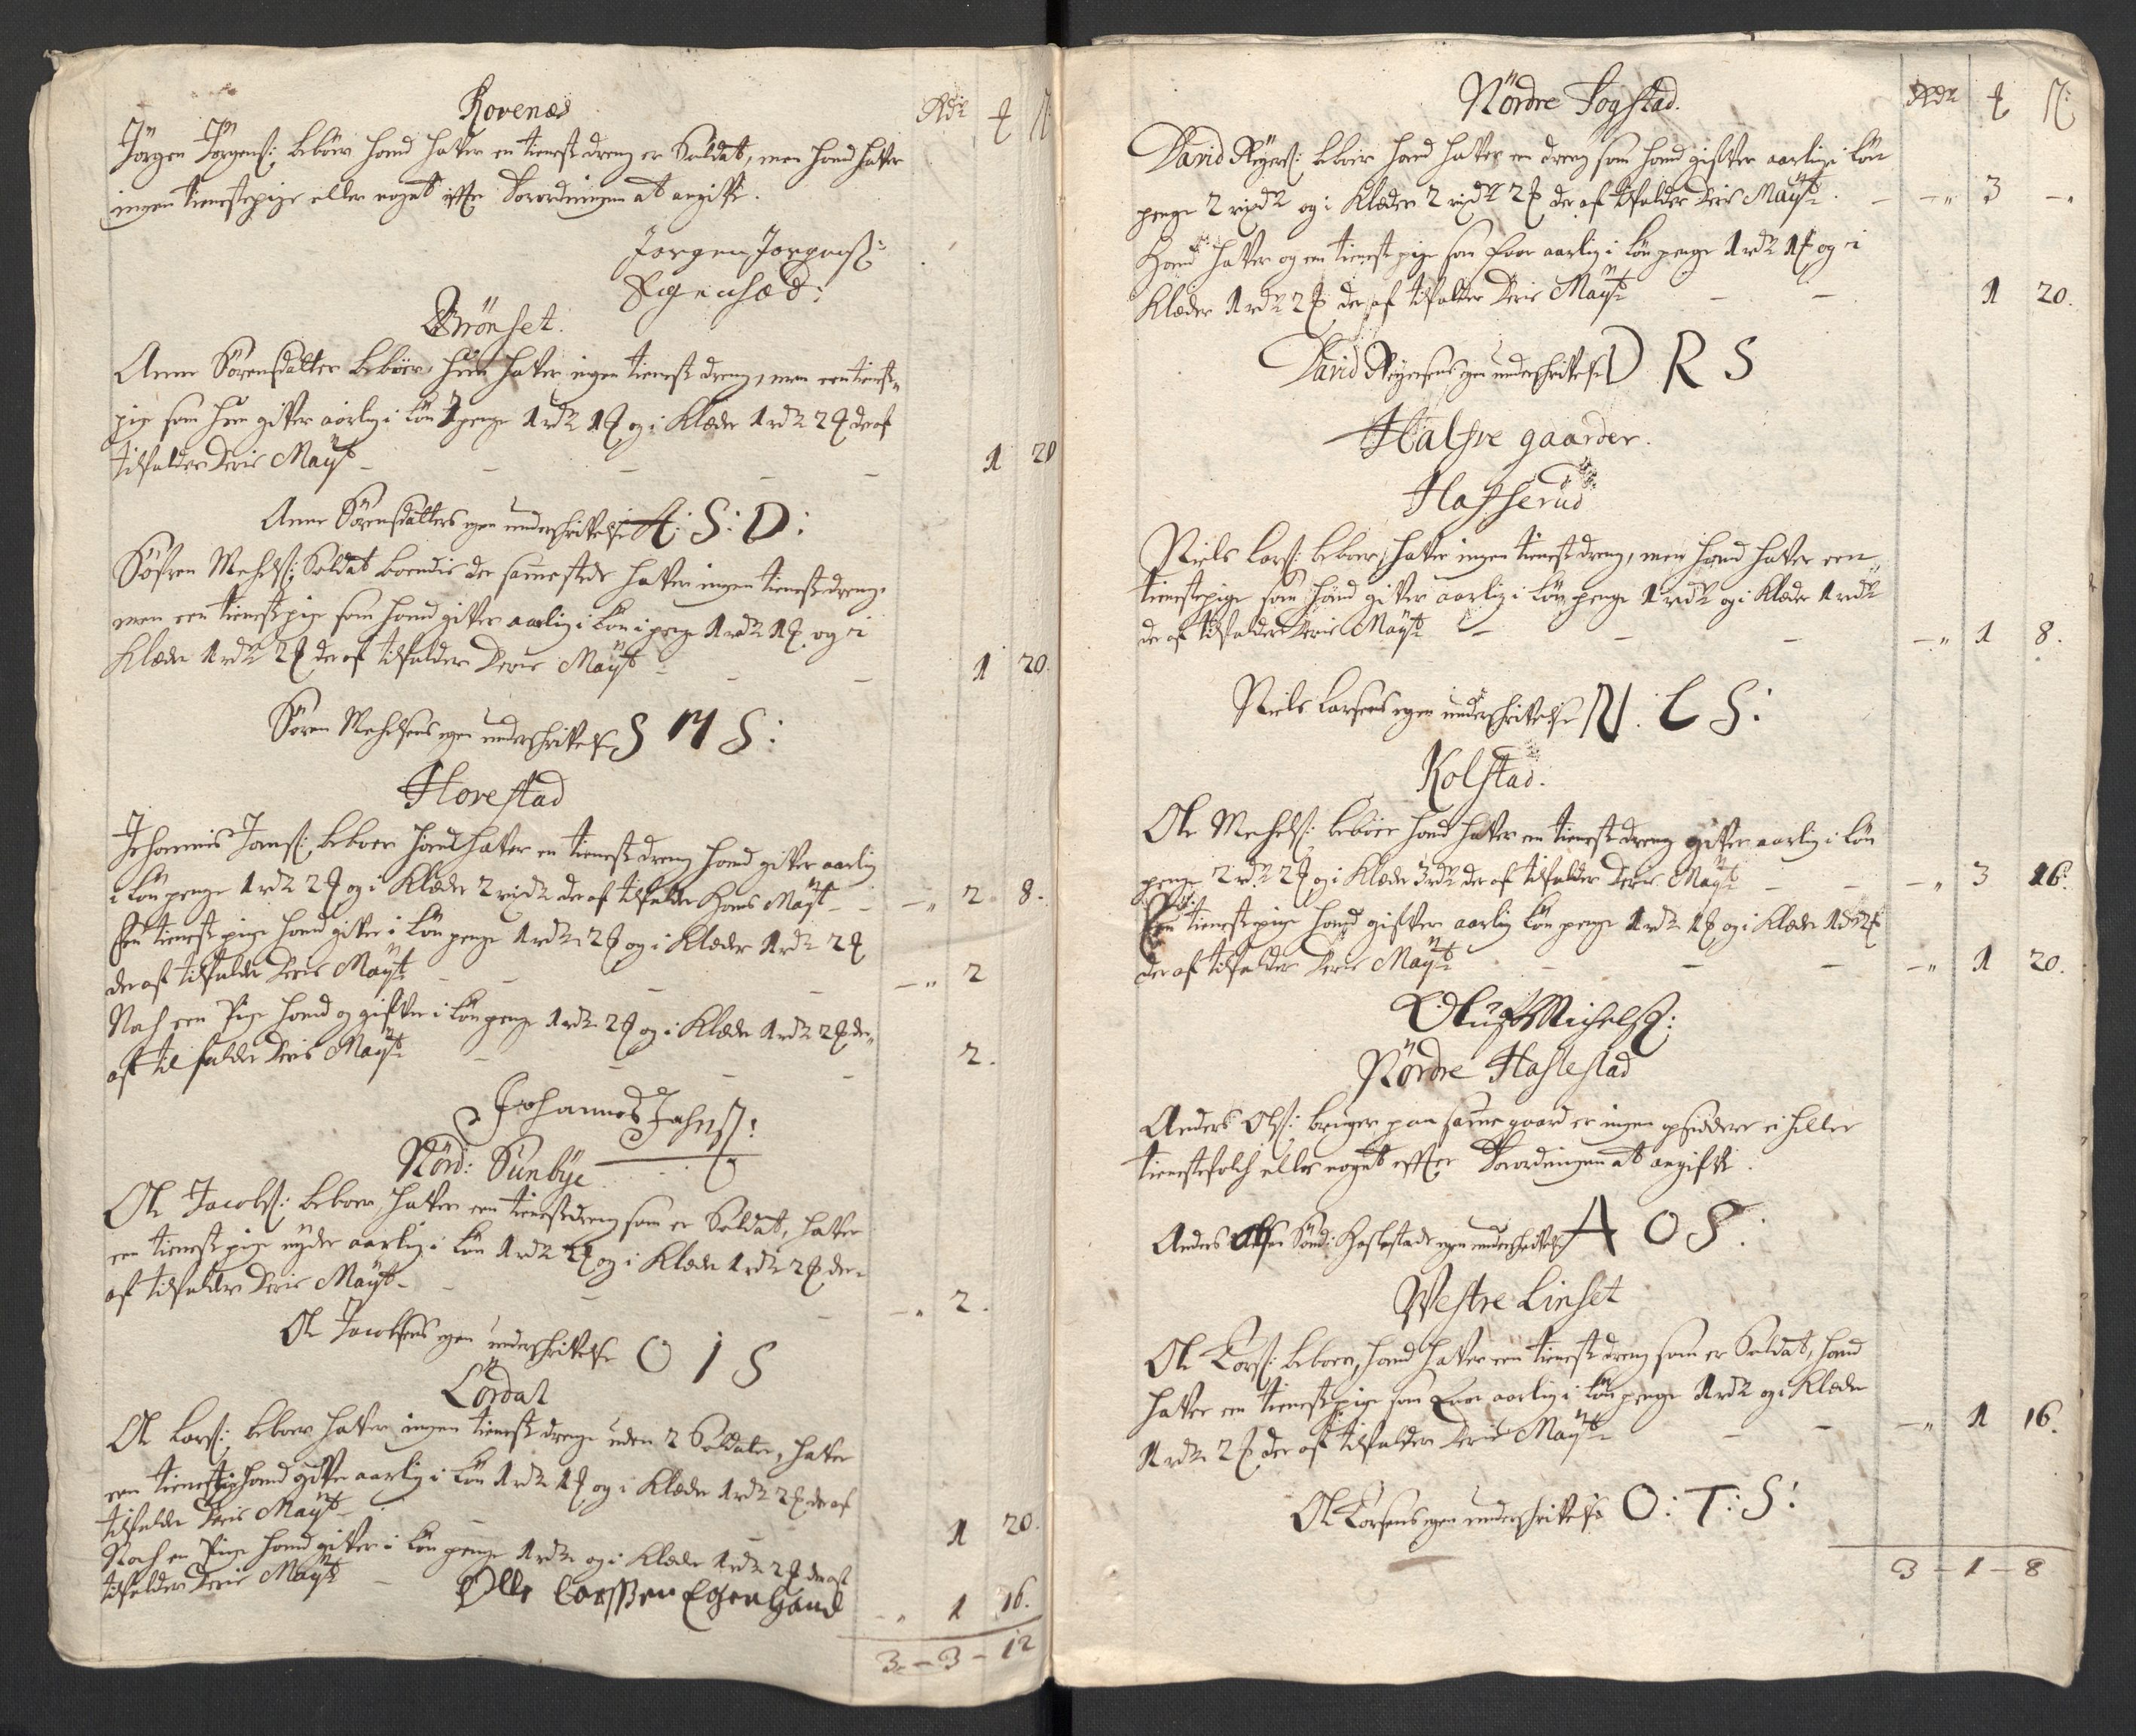 Rovenæs
Rdr ƭ ß:
Jörgen Jörgenß: beboer hand haver en tieneste dreng er Soldat, men hand haver
ingen tienestepige eller noget effter Forordningen at angifve.
Jorgen Jorgenß:
Egenhænd:
Brönset.
Anne Sörensdatter beboer, hun haver ingen tieneste dreng, men een tieneste
pige som hun gifver aarlig i Lön penge 1 rdr 1 ƭ og i Klæder 1 rdr 2 ƭ der af
tilfalder Deris Mayst - - - - 1 20
Anne Sörensdatters egen underschrivelse A: S: D:
Söfren Mehelß: Soldat boendis der sammesteds haver ingen tieneste dreng
men een tieneste pige som hand gifver aarlig i Lön i penge 1 rdr 1 ƭ og i
Klæder 1 rdr 2 ƭ der af tilfalder Deris Mayst - - - 1 20.
Sören Mehelsens egen underschrivelse S M S:
Hovestad
Johannis Jonsß: beboer hand haver en tieneste dreng hand gifver aarlig
i Lön penge 1 rdr 2 ƭ og i Klæder 2 rixdr der af tilfalder Hans Mayst - - -„ 2 8.
Een tieneste pige hand gifver i Lön penge 1 rdr 2 ƭ og i Klæder 1 rdr 2 ƭ
der af tilfalder Deris Mayst - - - - -„ 2
Noch een Pige hand og gifver i Lön penge 1 rdr 2 ƭ og i Klæder 1 rdr 2 ƭ der
af tilfalder Deris Mayst - - - - 2.
Johannes Jahnß:
Nörd: Sunbÿe
Ole Jacobß: beboer, haver een tieneste dreng som er Soldat, haver
een tieneste pige nyder aarlig i Lön 1 rdr 2 ƭ og i Klæder 1 rdr 2 ƭ der
af tilfalder Deris Mayst - - - - -„ 2.
Ole Jacobsens egen underschrivelse O I S
Lördal
Ole Larß: beboer haver ingen tieneste drenge uden 2 Soldater, haver
een tienestepige hand gifver aarlig i Lön 1 rdr 1 ƭ og i Klæder 1 rdr 2 ƭ der af
tilfalder Deris Mayst - - - 1 20.
Noch en Pige hand gifver i Lön penge 1 rdr og i Klæder 1 rdr 2 ƭ der af
tilfalder Deris Mayst - -„ 1 16.
Olle Larssen Egenhand
3 - 3 - 12
Nördre Fogstad.
Rdr ƭ ß:
David Reÿerß: beboer hand haver en dreng som hand gifver aarlig i Lön
penge 2 rixdr og i Klæder 2 rixdr 2 ƭ der af tilfalder Deris Mayst. - -„ 3 -„
Hand haver og een tieneste pige som faar aarlig i Lön penge 1 rdr 1 ƭ og i
Klæder 1 rdr 2 ƭ der af tilfalder Deris Mayst - - 1 20.
David Reÿersens egen underschrivelse D R S
Halfve gaarder.
Hafserud
Niels Larß: beboer, haver ingen tieneste dreng, men hand haver een
tienestepige som hand gifver aarlig i Lön penge 1 rdr og i Klæder 1 rdr
der af tilfalder Deris Mayst - - - -„ 1 8.
Niels Larsens egen underschrivelse N. L S:
Kolstad.
Ole Mehelß: beboer hand haver en tieneste dreng gifver aarlig i Lön
penge 2 rdr 2 ƭ og i Klæder 3 rdr der af tilfalder Deris Mayst - - -„ 3 16.
Een tieneste pige hand gifver aarlig Lön penge 1 rdr 1 ƭ og i Klæder 1 rdr 2 ƭ
der af tilfalder Deris Mayst - - - -„ 1 20.
Oluf Michelß:
Nördre Haslestad
Anders Olß: bruger paa samme gaard er ingen opsiddere ei heller
tienestefolch eller noget effter Forordningen at angifve.
Anders Olsen Sönd: Haslestads egen underschrivelse A O S:
Westre Linset
Ole Torß: beboer, hand haver een tieneste dreng som er Soldat, hand
haver een tieneste pige som faar aarlig i Lön penge 1 rdr og i Klæder
1 rdr 2 ƭ der af tilfalder Deris Mayst - - -„ 1 16.
Ole Torsens egen underschrivelse O: T: S:
3 - 1 - 8